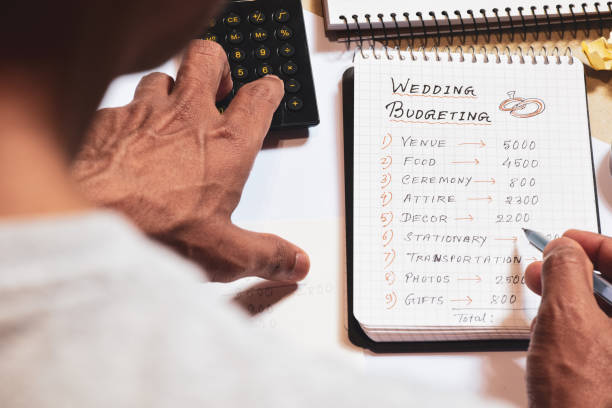 WEDDING
BUDGETING
1) VENUE → 5000
2) FOOD → 4500
3) CEREMONY → 800
4) ATTIRE → 2300
5) DECOR → 2200
6) STATIONARY →
7) TRANSPORTATION →
8) PHOTOS → 2500
9) GIFTS → 800
Total:
CE
M-
M+
%
9
6
5